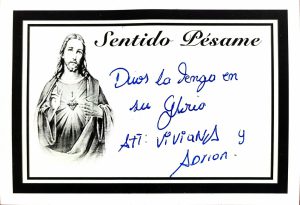 Sentido Pésame
Duos lo tenga en
su Glorio
Att: Viviana y
Adrion.